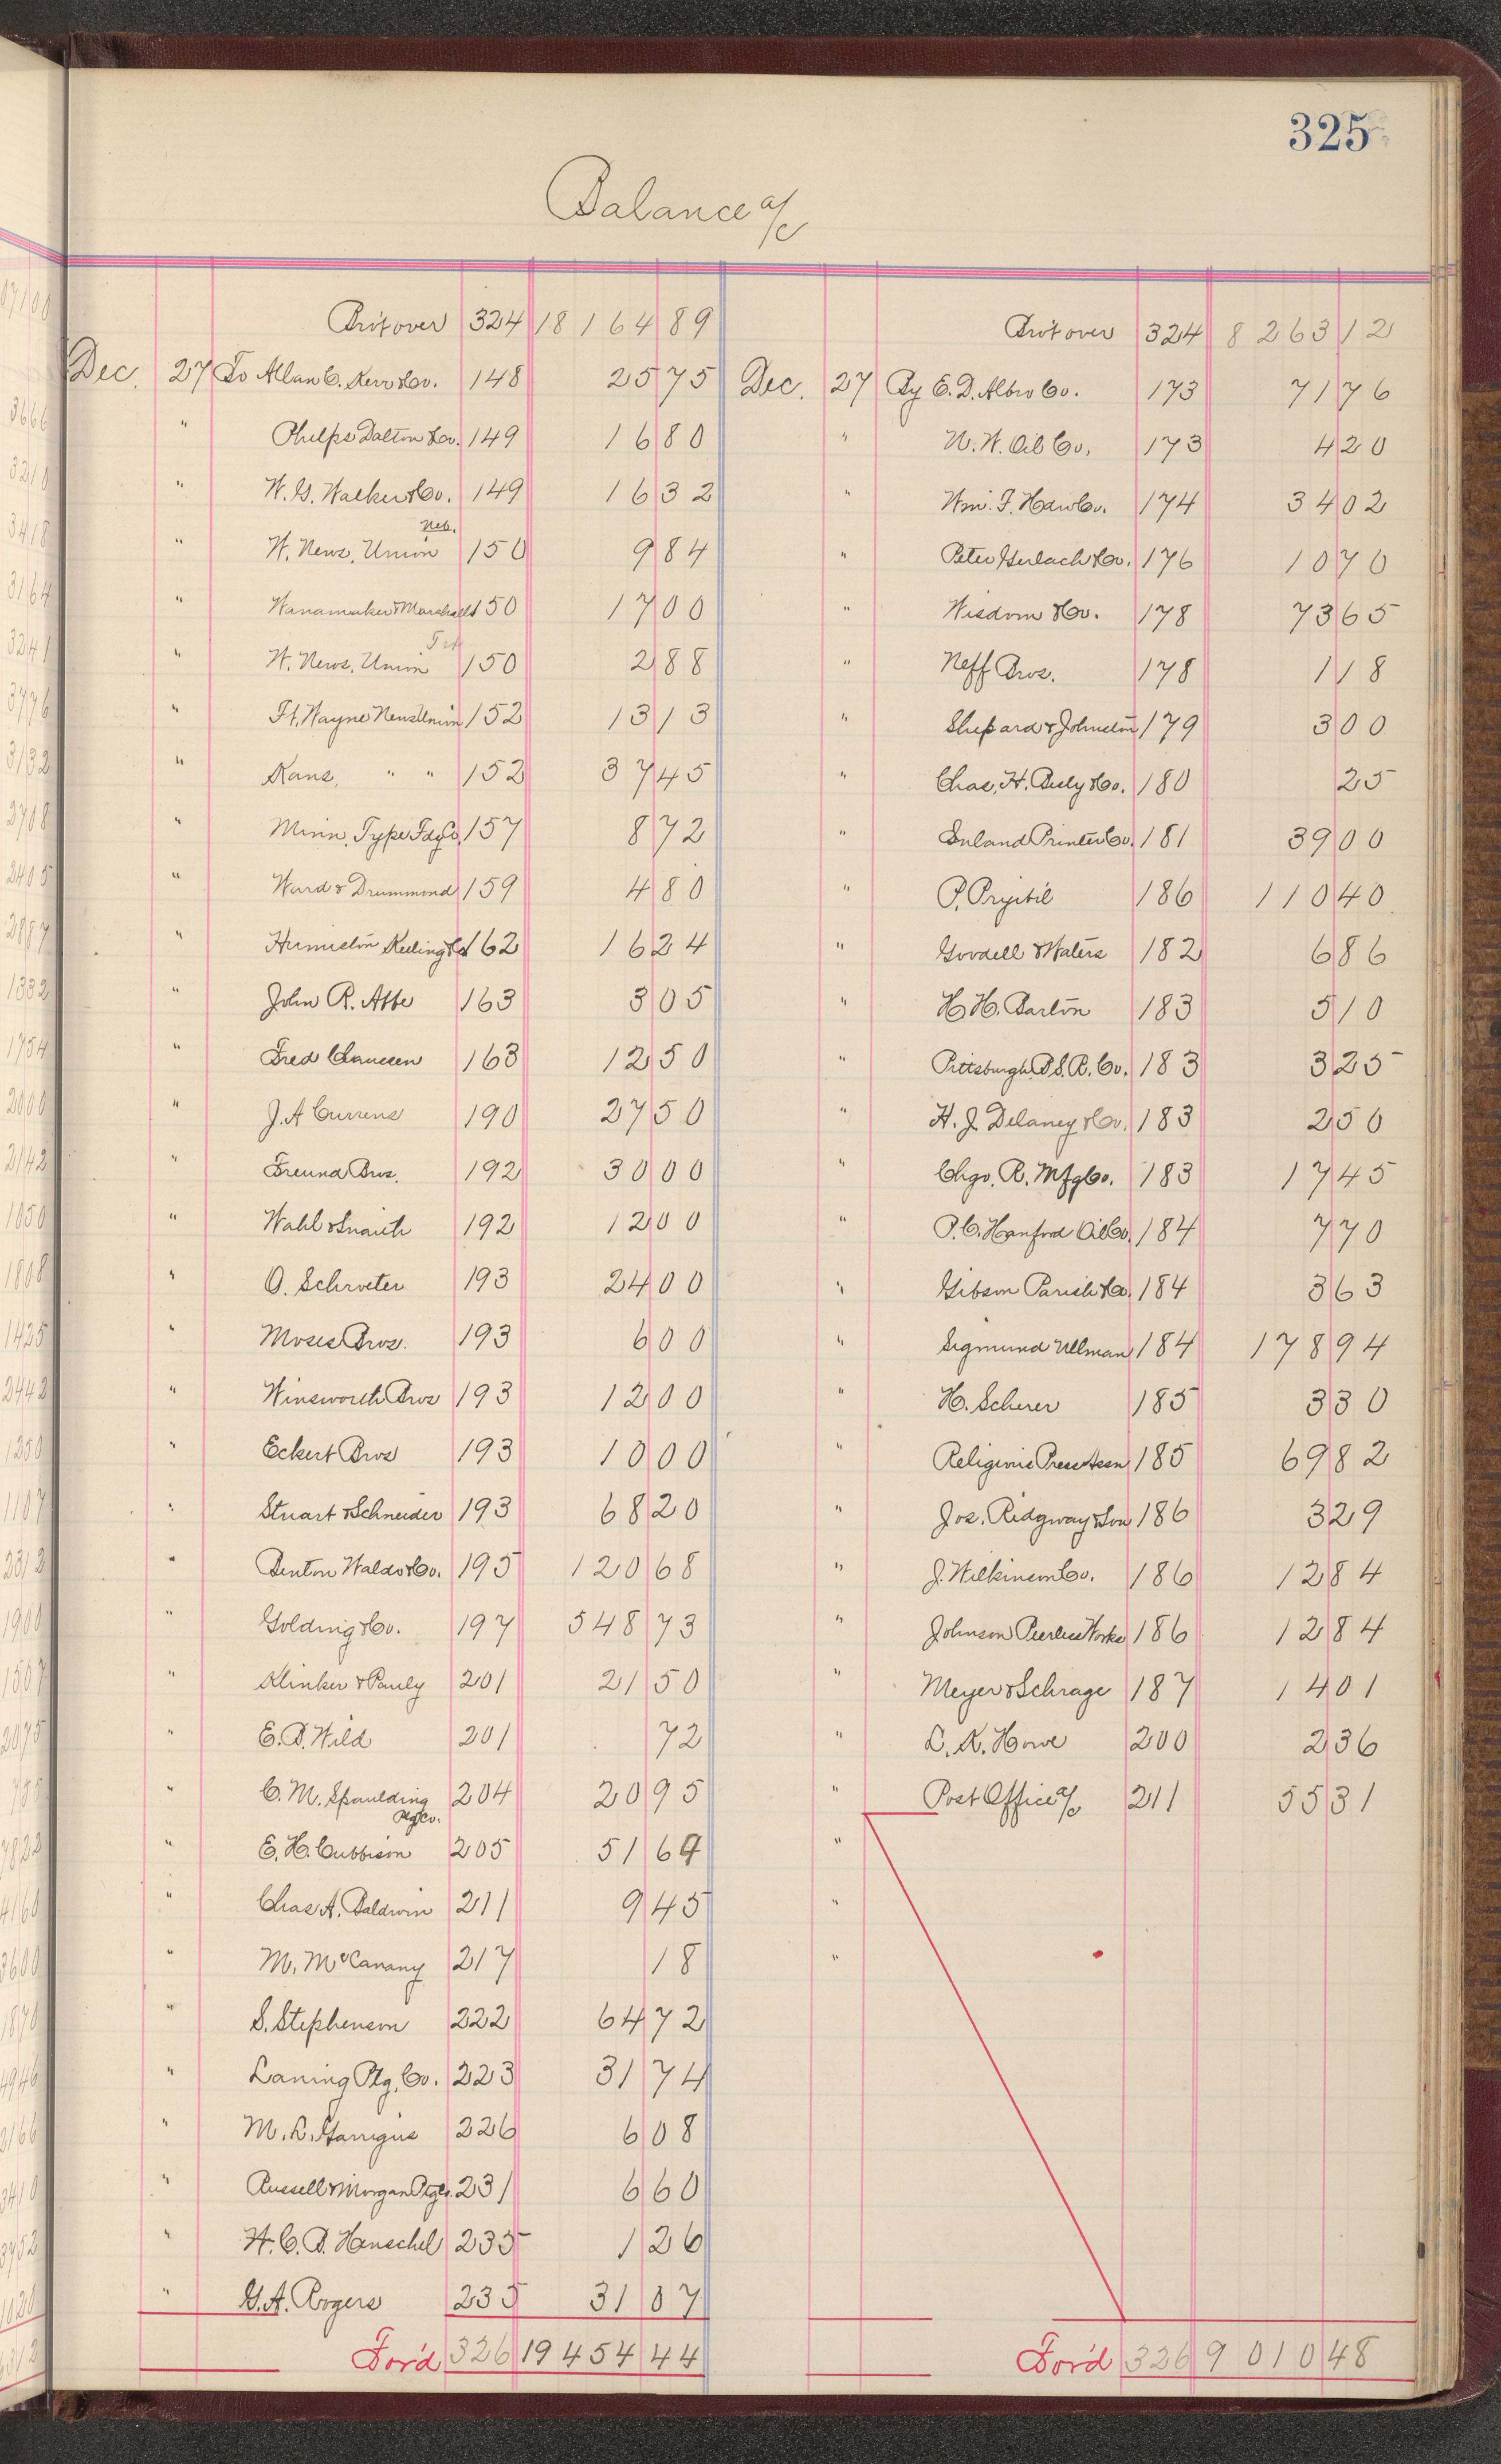 325
Balance a/c
Bro't over 324 18 164 89
Dec. 27 To Allan C. Kerr & Co. 148 25 75
" Phelps Dalton & Co. 149 16 80
" W. G. Walker & Co. 149 16 32
" W. News. Union Neb. 150 9 84
" Wanamaker & Marshall 150 17 00
" W. News. Union 150 2 88
" Ft. Wayne News Union 152 13 13
" Kans. " " 152 37 45
" Minn. Type Fdy Co. 157 8 72
" Ward & Drummond 159 4 80
" Humiston Keeling & Co 162 16 24
" John R. Abbe 163 3 05
" Fred Claussen 163 12 50
" J. A Currens 190 27 50
" Freund Bros. 192 30 00
" Wahl & Snaith 192 12 00
" O. Schroeter 193 24 00
" Moses Bros. 193 6 00
" Winsworth Bros 193 12 00
" Eckert Bros 193 10 00
" Stuart & Schneider 193 68 20
" Benton Waldo & Co. 195 120 68
" Golding & Co. 197 548 73
" Klinker & Pauly 201 21 50
" E. B. Wild 201 72
" C. M. Spaulding 204 20 95
" E. H. Cubbison Ptg Co. 205 51 69
" Chas A. Baldwin 211 9 45
" M. McCanany 217 18
" S. Stephenson 222 64 72
" Laning Ptg. Co. 223 31 74
" M. L. Garrigus 226 6 08
" Russell & Morgan Ptg Co. 231 6 60
" H. C. B. Henschel 235 1 26
" G. A. Rogers 235 31 07
For'd 326 19 454 44
Bro't over 324 8 263 12
Dec. 27 By E. D. Albro Co. 173 71 76
" N. W. Oil Co. 173 4 20
" Wm. F. Haw Co. 174 34 02
" Peter Gerlach & Co. 176 10 70
" Wisdom & Co. 178 73 65
" Neff Bros. 178 1 18
" Shepard & Johnston 179 3 00
" Chas. H. Besly & Co. 180 25
" Inland Printer Co. 181 39 00
" P. Pryibil 186 110 40
" Goodell & Waters 182 6 86
" H H. Barton 183 5 10
" Pittsburgh P. S. R. Co. 183 3 25
" H. J. Delaney & Co. 183 2 50
" Chgo. R. Mfg Co. 183 17 45
" P. C. Hanford Oil Co. 184 7 70
" Gibson Parish & Co. 184 3 63
" Sigmund Ullman 184 178 94
" H. Scherer 185 3 30
" Religious Press Assn 185 69 82
" Jos. Ridgway & Son 186 3 29
" J. Wilkinson Co. 186 12 84
" Johnson Peerless Works 186 12 84
" Meyer & Schrage 187 14 01
" L. K. Howe 200 2 36
" Post Office a/c 211 55 31
"
"
"
For'd 326 9 010 48